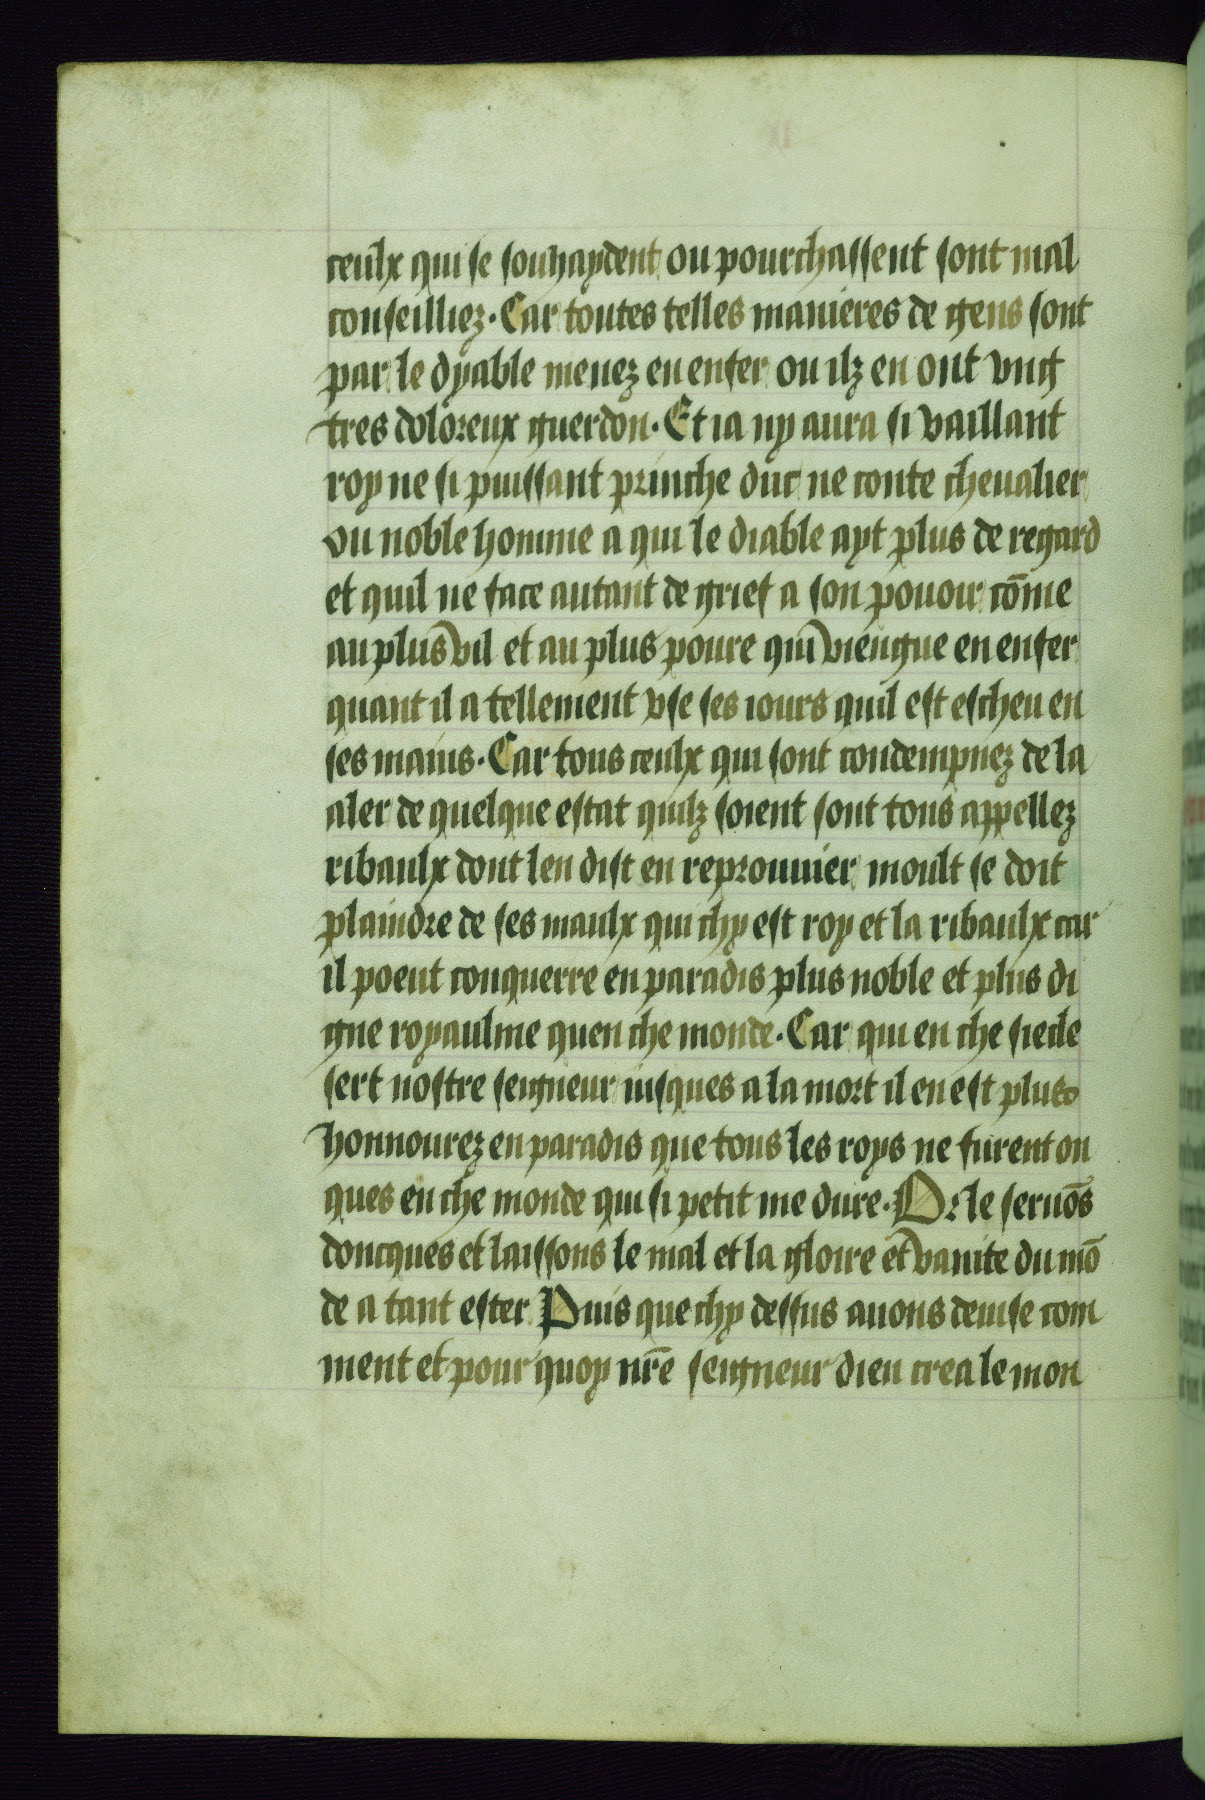 ceulx qui se souhaydent ou pourchassent sont mal
conseilliez. Car toutes telles manieres de gens sont
par le dyable menez en enfer ou ilz en ont vng
tres doloreux guerdon. Et ia ny aura si vaillant
roy ne si puissant prinche duc ne conte cheualier
ou noble homme a qui le diable ayt plus de regard
et quil ne face autant de grief a son pouoir cõme
au plus vil et au plus poure qui viengne en enfer
quant il a tellement vse ses iours quil est escheu en
ses mains. Car tous ceulx qui sont condempnez de la
aler de quelque estat quilz soient sont tous appellez
ribaulx dont len dist en reprouuier moult se doit
plaindre de ses maulx qui chy est roy et la ribaulx car
il poeut conquerre en paradis plus noble et plus di
gne royaulme quen che monde. Car qui en che siecle
sert nostre seigneur iusques a la mort il en est plus
honnourez en paradis que tous les roys ne furent on
ques en che monde qui si petit me dure. Or le seruõs
doncques et laissons le mal et la gloire et vanite du mõ
de a tant ester Puis que chy dessus auons deuise com
ment et pour quoy nr̃e seigneur dieu crea le mon